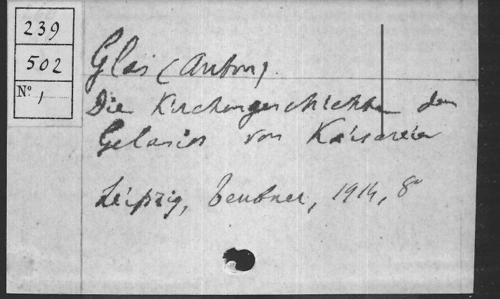 239
502
N° 1
Glas (Anton).
Die Kirchengeschichte des
Gelasios von Kaisareia
Leipzig, Teubner, 1914, 8°